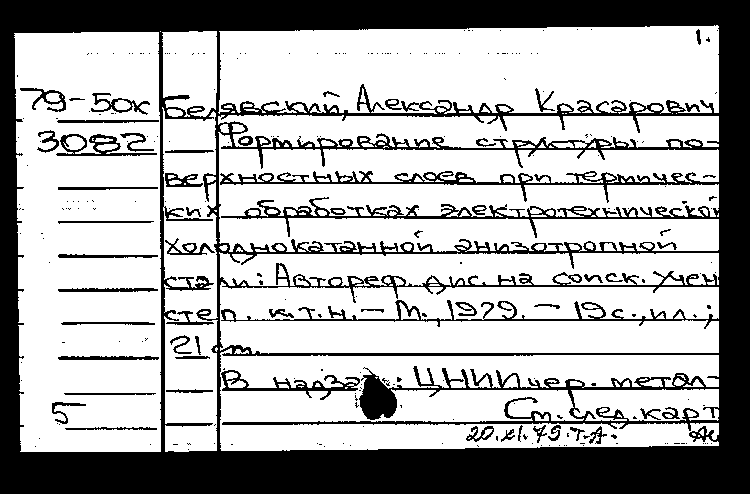 1.
79-50к Белявский, Александр Красарович
3082 Формирование структуры по-
верхностных слоев при термичес-
ких обработках электротехнической
холоднокатанной анизотропной
стали: Автореф. дис. на соиск. учен
степ. к.т.н. - М., 1979. - 19 с., ил.;
21 см.
В надзаг.: ЦНИИ чер. метал-
5 См. след. карт
20.XI.79.Т.А.